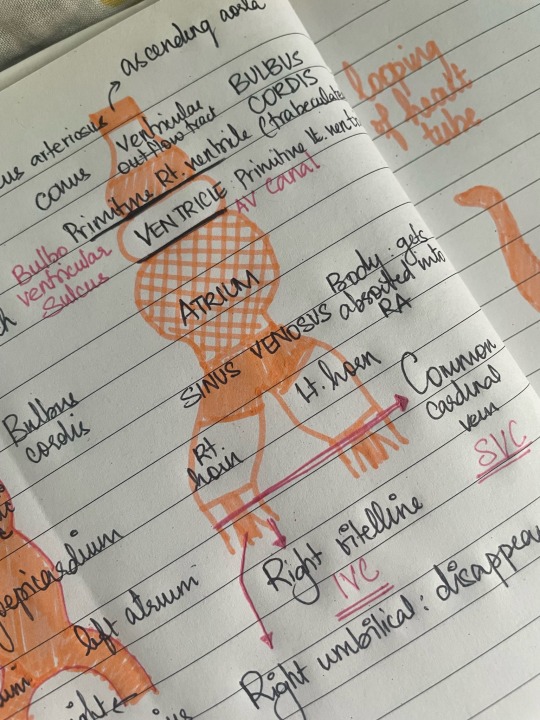 ascending aorta
arteriosus
Conus
Ventricular
outflow tract
BULBUS
CORDIS
Primitive Rt. ventricle (trabeculate
VENTRICLE
Primitive lt. ventri
AV Canal
Bulbo
ventricular
Sulcus
ATRIUM
SINUS VENOSUS
Body : gets
absorbed into
RA
Lt. horn
Rt.
horn
Common
Cardinal
vein
SVC
Right vitelline
IVC
Right umbilical : disappear
looping
of heart
tube
Bulbus
cordis
epicardium
left atrium